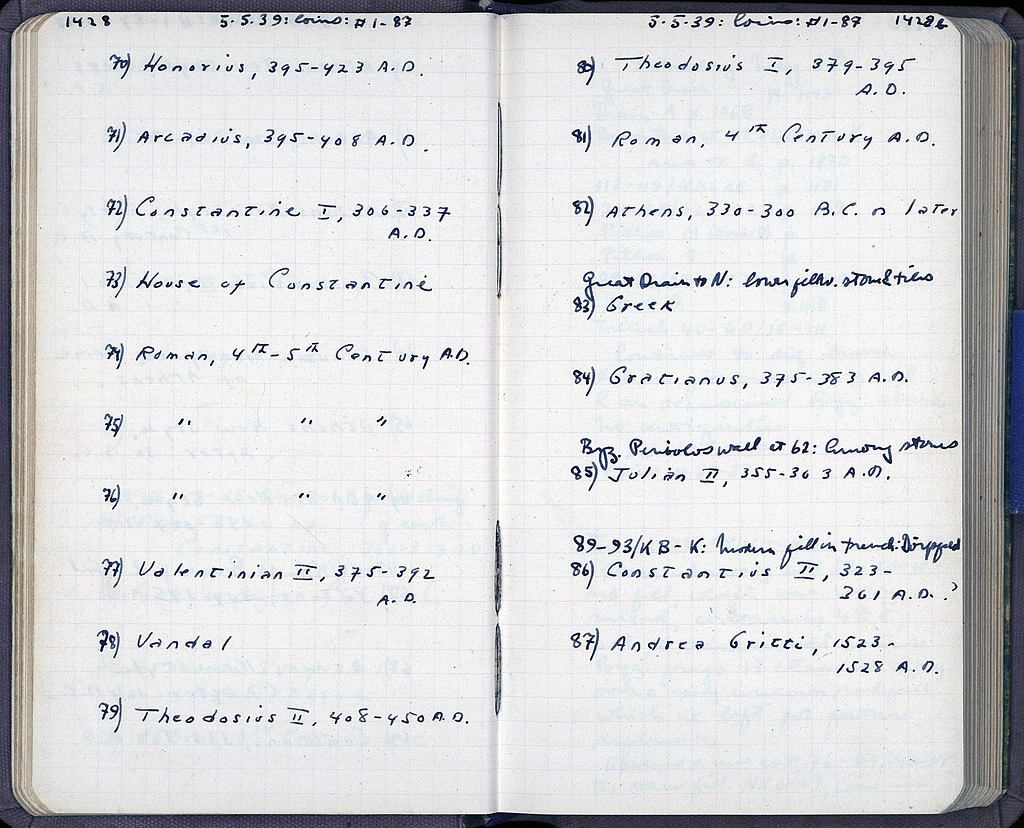 1428 5-5-39: Coins: #1-87
70) Honorius, 395-423 A.D.
71) Arcadius, 395-408 A.D.
72) Constantine I, 306-337
A.D.
73) House of Constantine
74) Roman, 4th-5th Century A.D.
75) " " "
76) " " "
77) Valentinian II, 375-392
A.D.
78) Vandal
79) Theodosius II, 408-450 A.D.
5-5-39: Coins: #1-87 1428b
80) Theodosius I, 379-395
A.D.
81) Roman, 4th Century A.D.
82) Athens, 330-300 B.C. or later
Great Drain to N: lower fill w. stone & tiles
83) Greek
84) Gratianus, 375-383 A.D.
Byz. Peribolos wall at 62: Among stones
85) Julian II, 355-363 A.D.
89-93/KB-K: Modern fill in trench: Dörpfeld
86) Constantius II, 323-
361 A.D.?
87) Andrea Gritti, 1523-
1528 A.D.